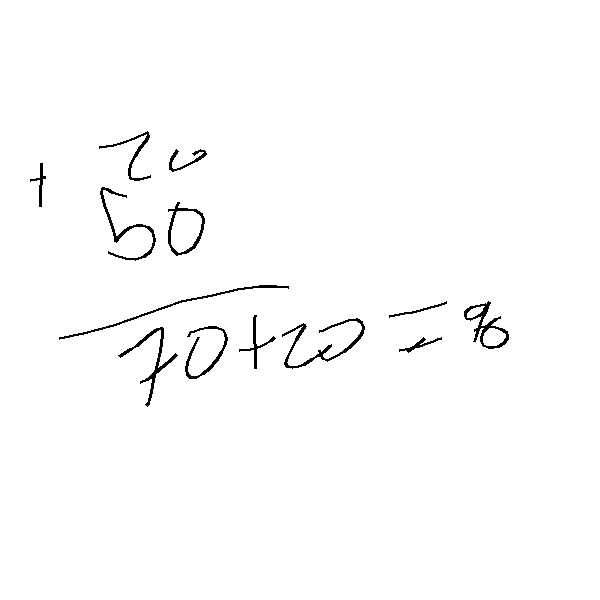 20
+ 50
70+20=90